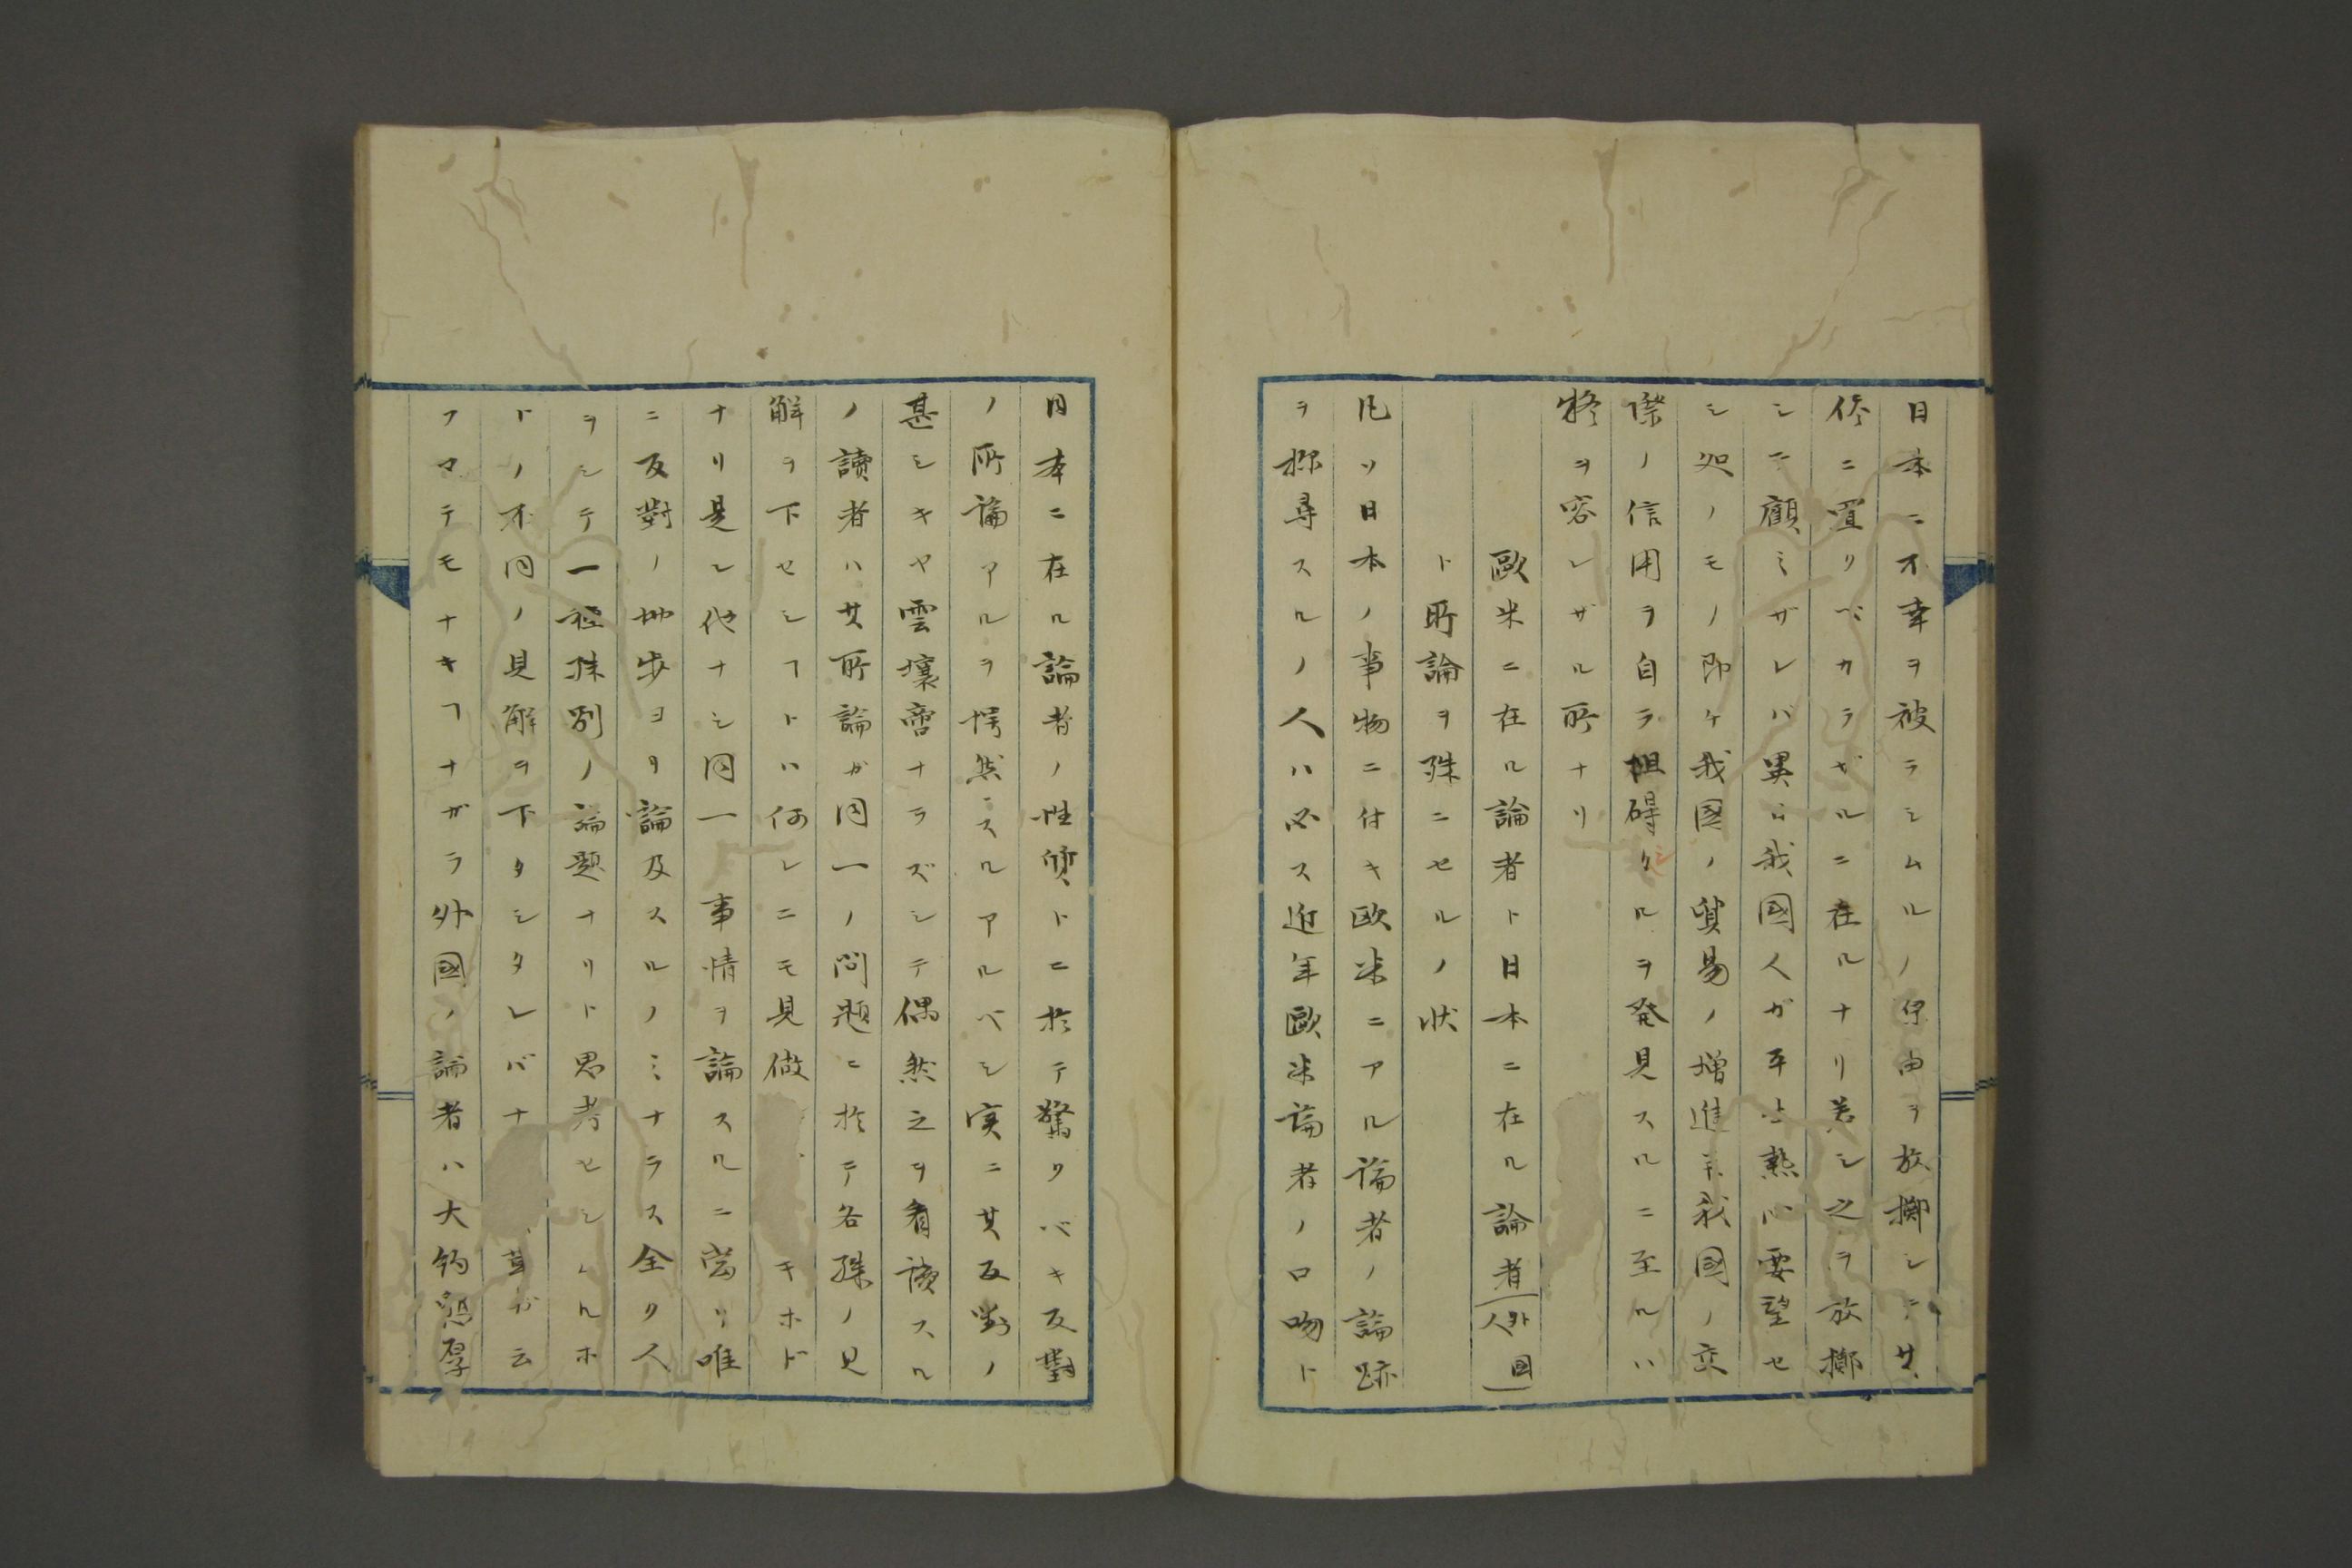 日本ニ不幸ヲ被ラシムルノ便由ヲ放擲シニ其
修ニ置クベカラザルニ在ルナリ若シ之ヲ放擲
シテ顧ミザレバ異ニ我國人ガ平生熱心要望セ
シ処ノモノ即ケ我國ノ貿易ノ増進并我國ノ交
際ノ信用ヲ自ラ阻碍クルヲ発見スルニ至ルハ
疑ヲ容レザル所ナリ
歐米ニ在ル論者ト日本ニ在ル論者(外国人)
ト所論ヲ殊ニセルノ状
凡ソ日本ノ事物ニ付キ欧米ニアル論者ノ論跡
ヲ探尋スルノ人ハ必ス近年歐米論者ノ口吻ト
日本ニ在ル論者ノ性質トニ於テ驚クバキ反對
ノ所論アルヲ愕然ニスルアルベシ実ニ其反對ノ
甚シキヤ雲壤啻ナラズシテ偶然之ヲ看讀スル
ノ讀者ハ其所論ガ同一ノ問題ニ於テ各殊ノ見
解ヲ下セシヿトハ何レニモ見做 キホド
ナリ是レ他ナシ同一事情ヲ論スルニ當リ唯
ニ反對ノ地歩ヨリ論及スルノミナラス全ク人
ヲシテ一種殊別ノ論題ナリト思考セシムルホ
ドノ不同ノ見解ヲ下タシタレバナ 豈ガ云
フマテモナキヿナガラ外國ノ論者ハ大約懇厚